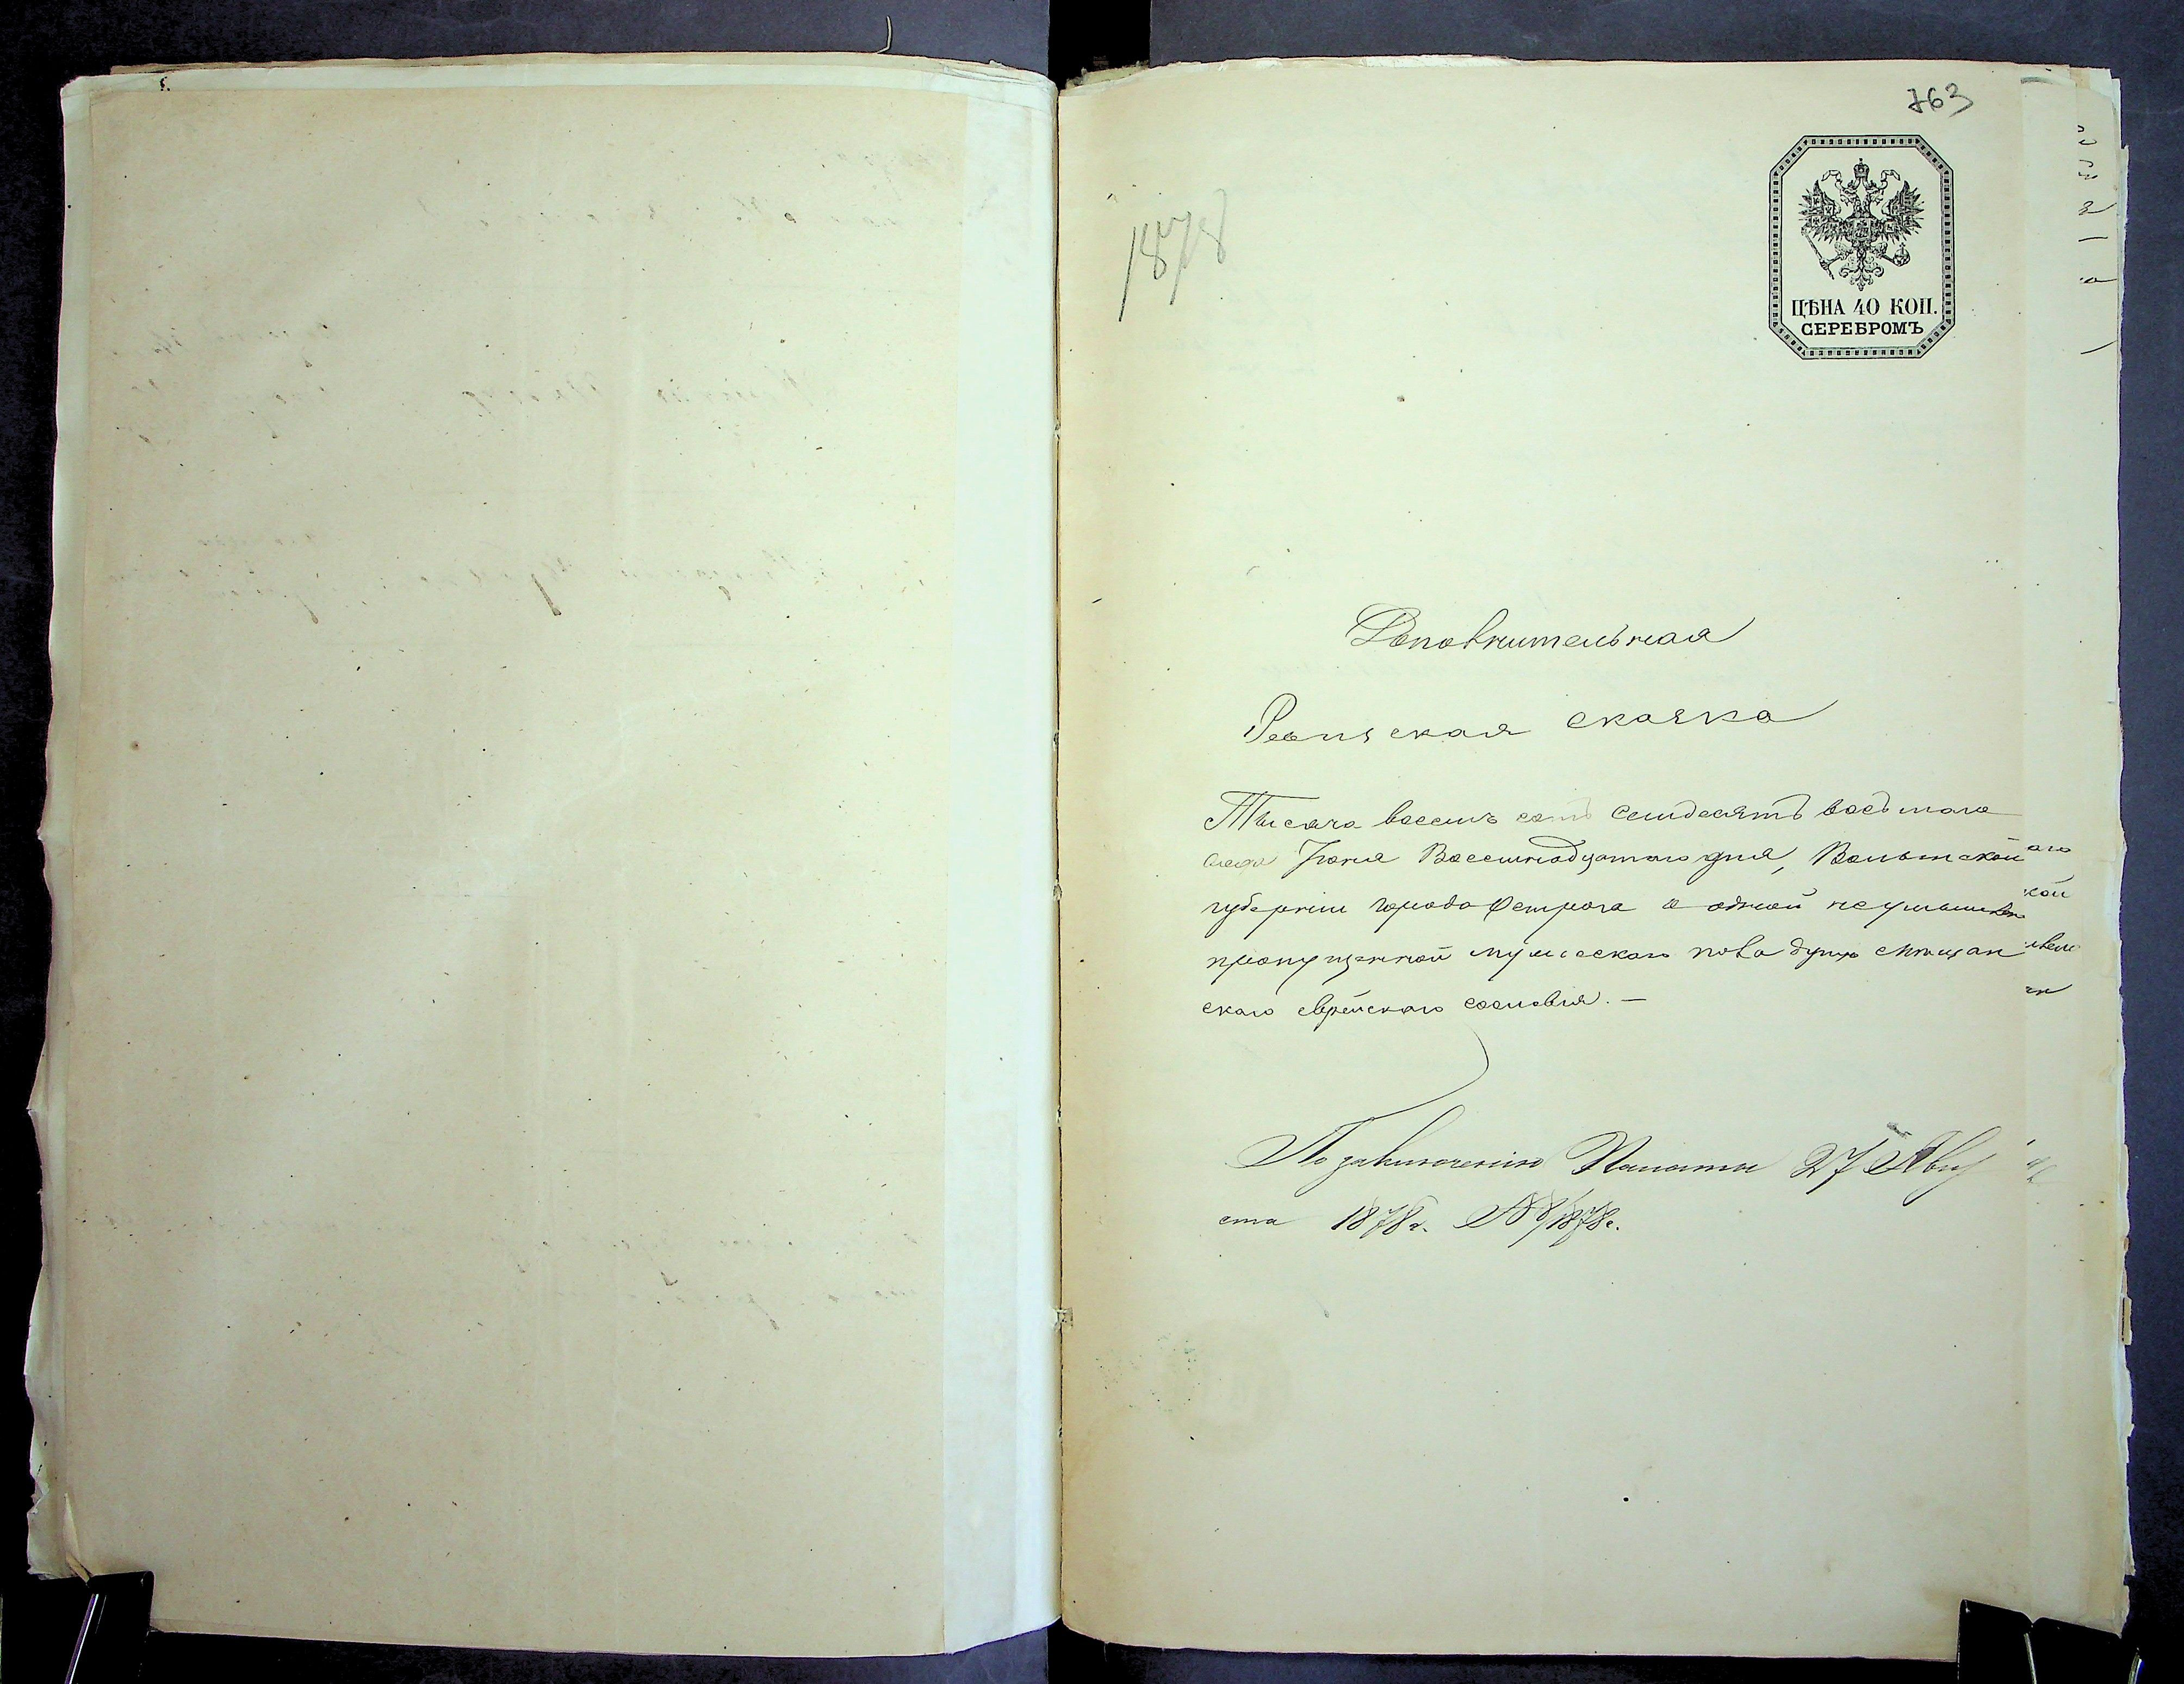 763
1878
ЦѢНА 40 КОП.
СЕРЕБРОМЪ
Дополнительная
Ревизская сказка
Тысяча восемь сотъ семдесятъ восьмаго
года Іюня Восемнадцатаго дня, Волынской
губерніи города Острога о одной неумышленно
пропущенной мужескаго пола душѣ мѣщан
скаго еврейскаго сословія. —
По заключенію Палаты 27 Авгу
ста 1878 г. 1878 г.